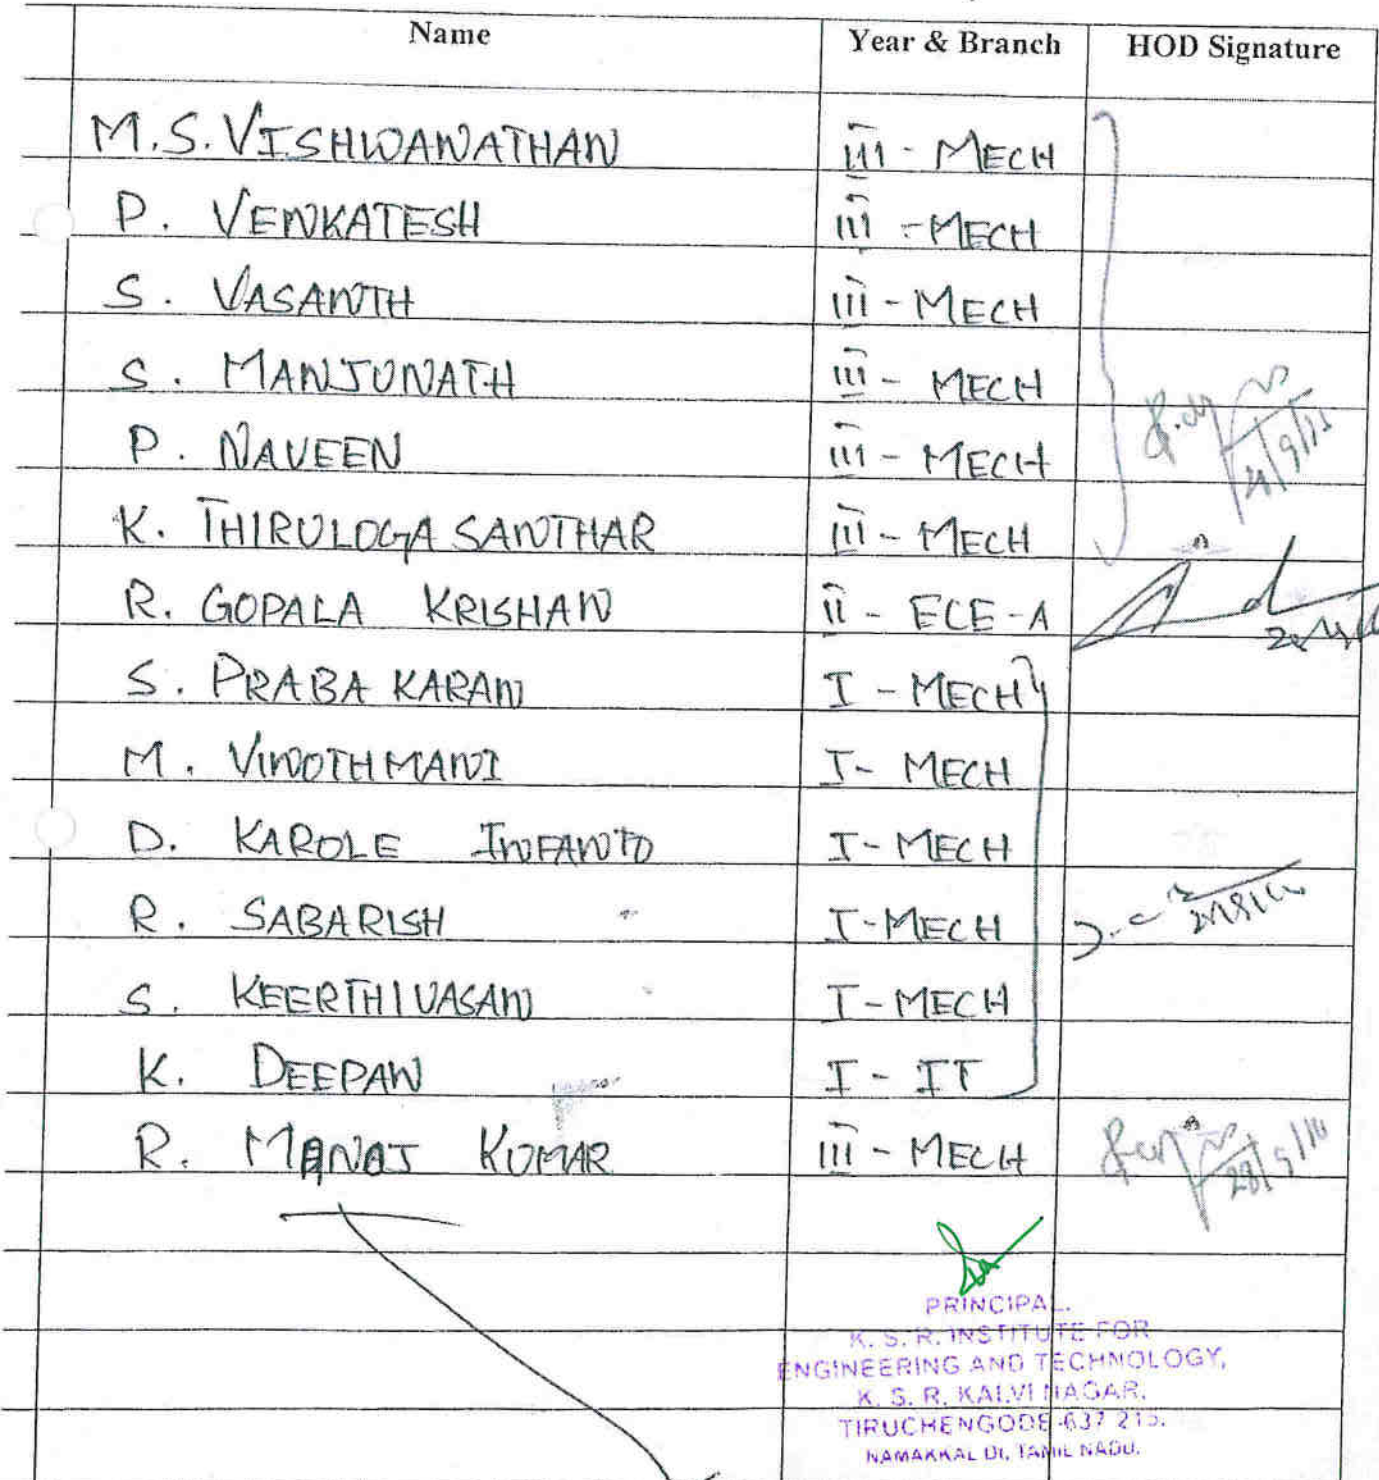 Name Year & Branch HOD Signature
M.S. VISHWANATHAN III - MECH
P. VENKATESH III - MECH
S. VASANTH III - MECH
S. MANJUNATH III - MECH
P. NAVEEN III - MECH
K. THIRULOGA SANTHAR III - MECH
R. GOPALA KRISHAN II - ECE-A
S. PRABA KARAN I - MECH
M. VINOTH MANI I - MECH
D. KAROLE INFANTO I - MECH
R. SABARISH I - MECH
S. KEERTHIVASAN I - MECH
K. DEEPAN I - IT
R. MANOJ KUMAR III - MECH
PRINCIPAL.
K. S. R. INSTITUTE FOR
ENGINEERING AND TECHNOLOGY,
K. S. R. KALVI NAGAR,
TIRUCHENGODE-637 215.
NAMAKKAL Dt, TAMIL NADU.